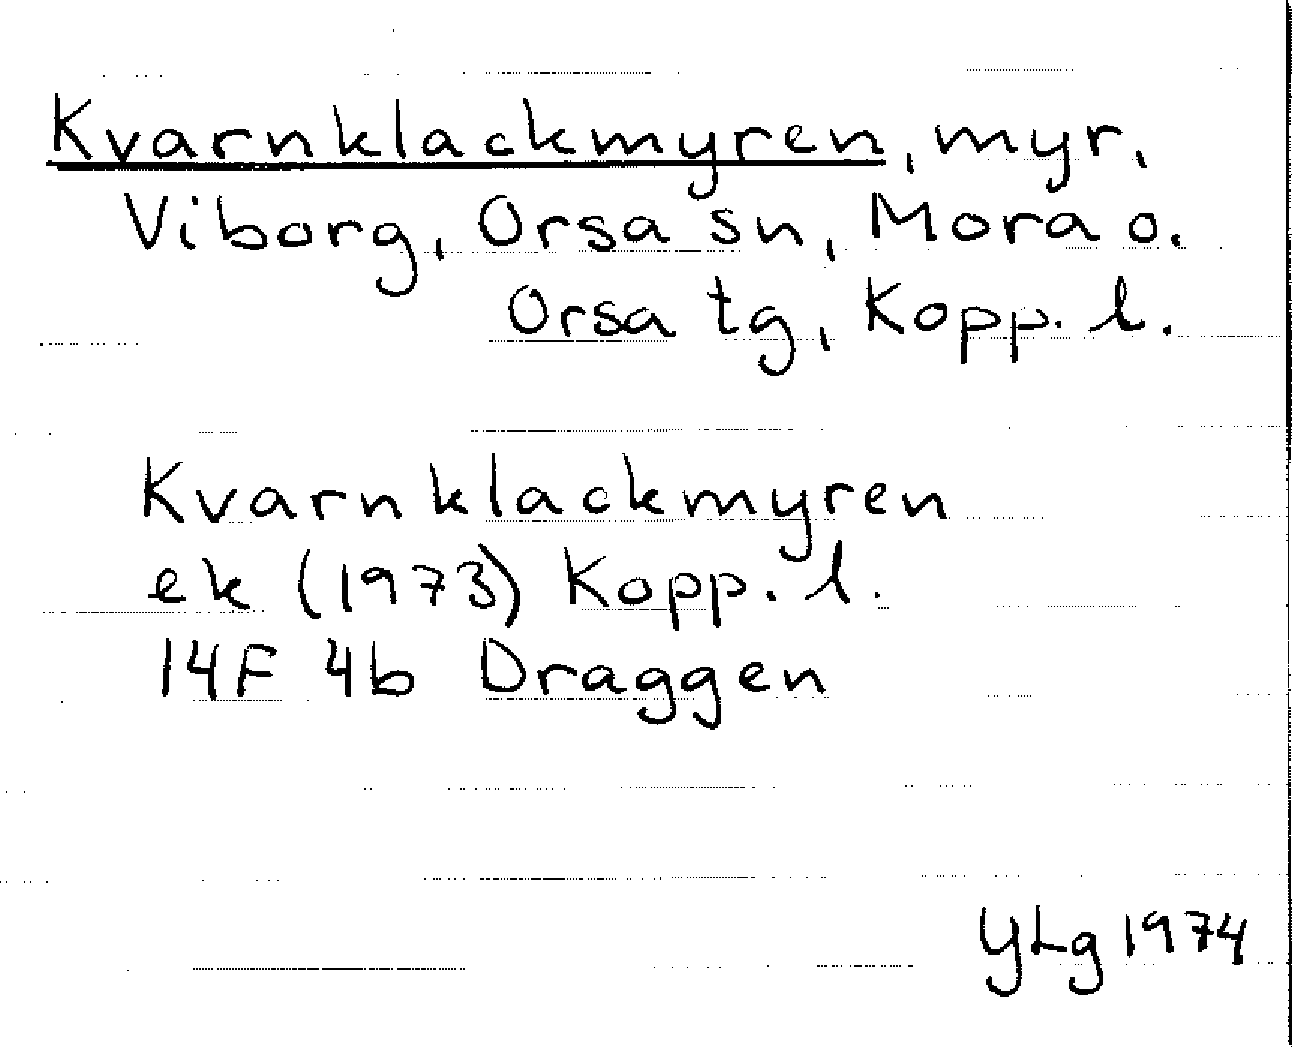 Kvarnklackmyren, myr,
Viborg, Orsa sn, Mora o.
Orsa tg, Kopp. l.
Kvarnklackmyren
ek (1973) Kopp. l.
14F 4b Draggen
YLg 1974